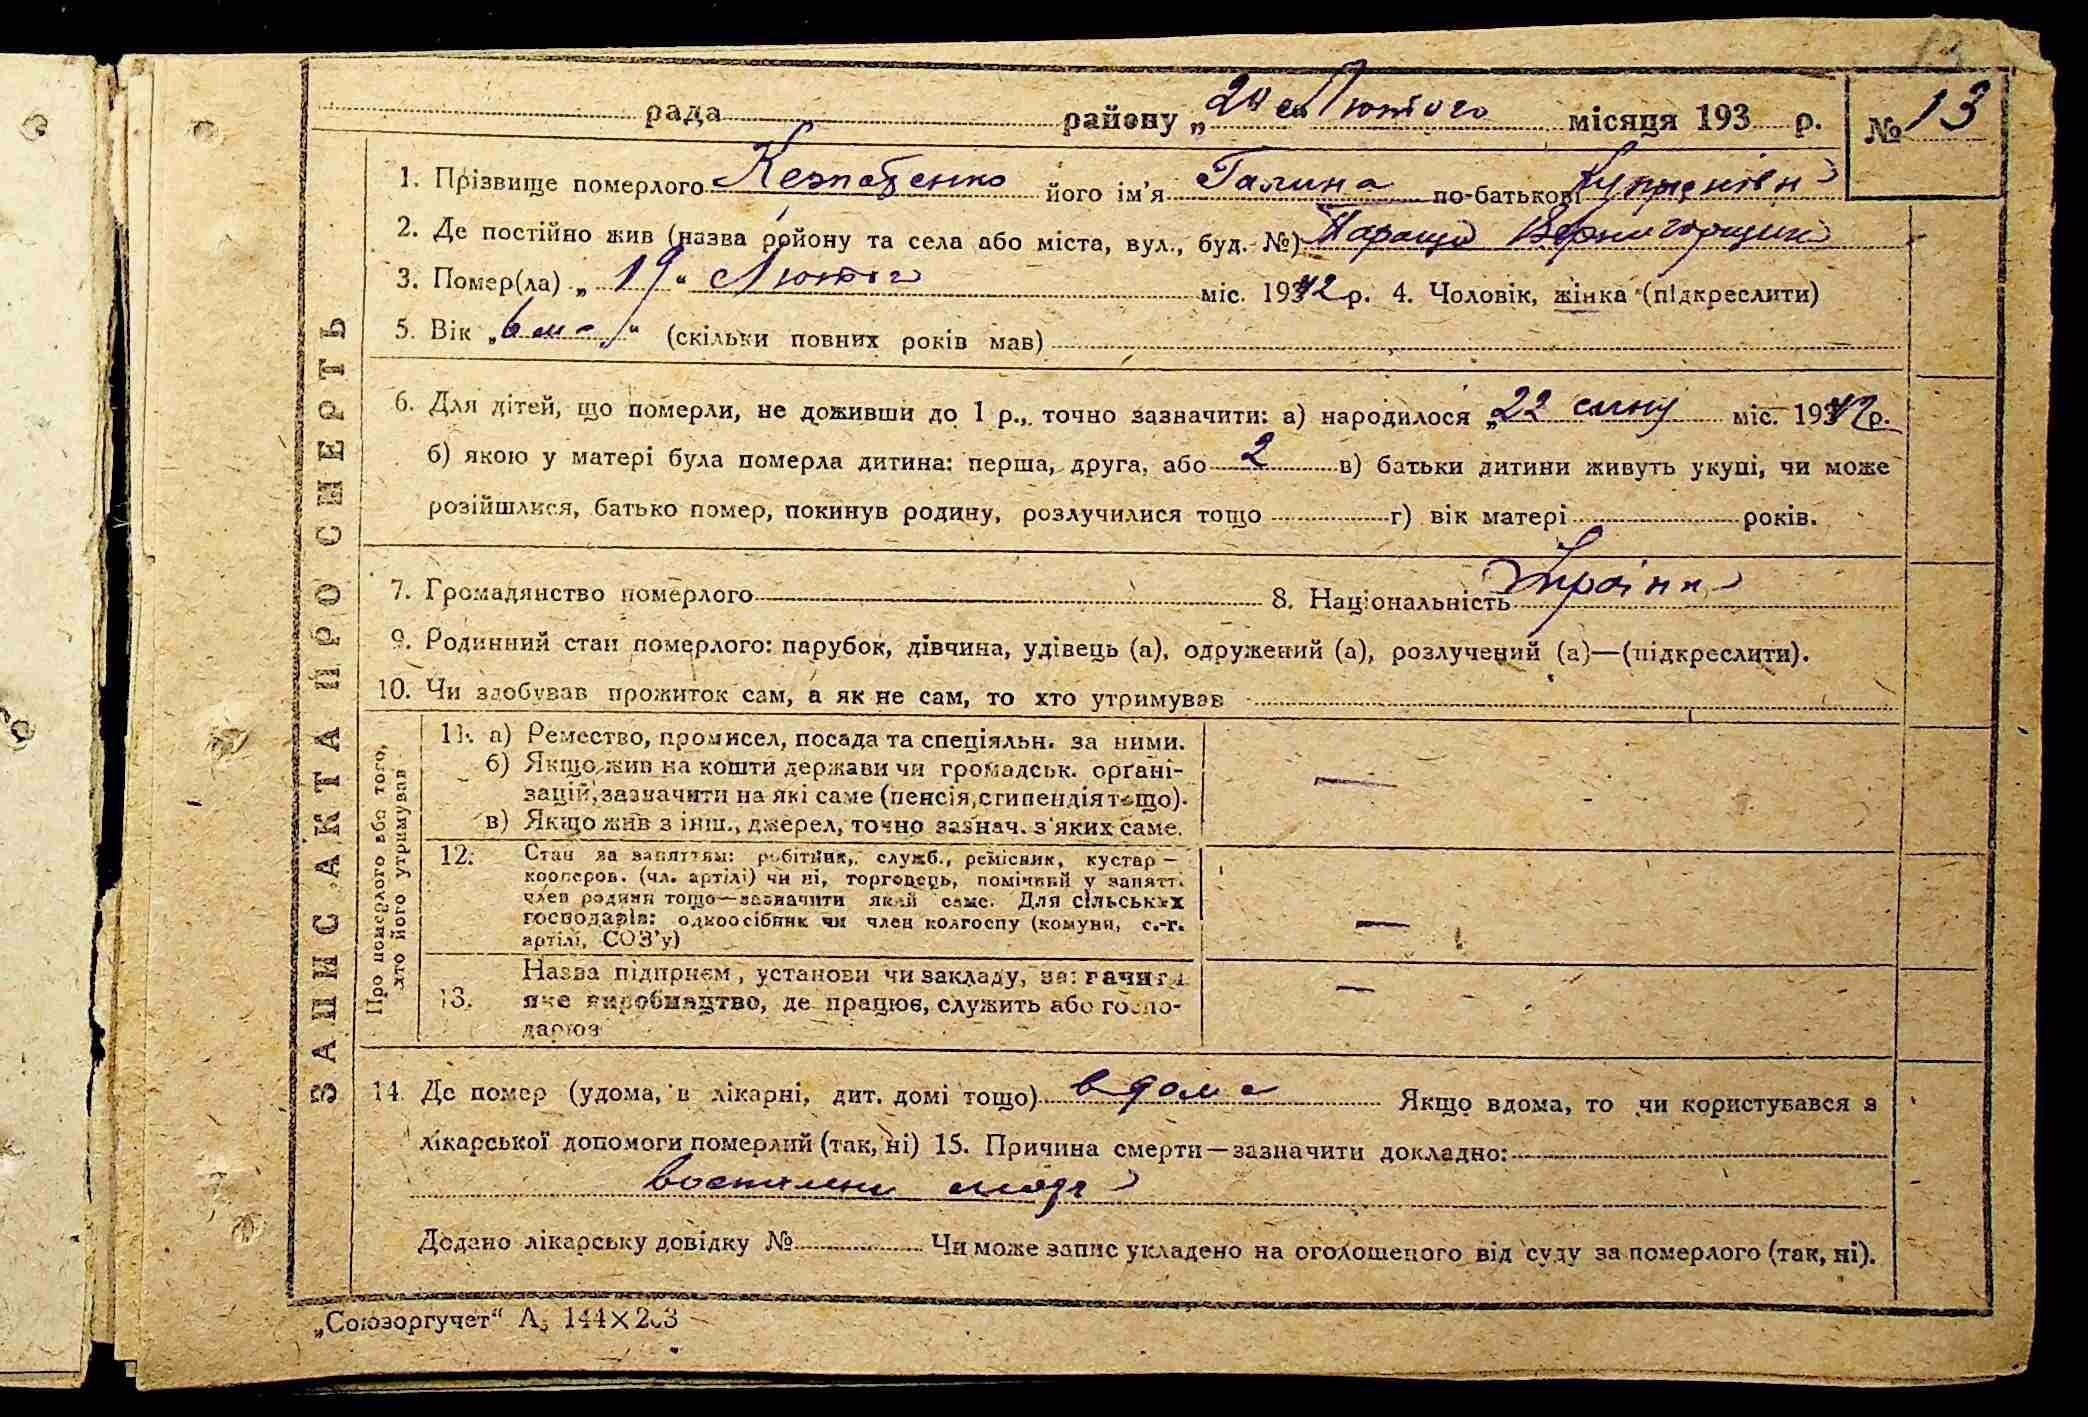 13
рада району „20“ Лютого місяця 193 р. № 13
1. Прізвище померлого його ім'я Галина по-батькові
2. Де постійно жив (назва району та села або міста, вул., буд. №) Тараща
3. Помер(ла) „19“ Лютого міс. 1942 р. 4. Чоловік, жінка (підкреслити)
5. Вік „ “ (скільки повних років мав)
6. Для дітей, що померли, не доживши до 1 р., точно зазначити: а) народилося „22 міс. 1942 р.
б) якою у матері була померла дитина: перша, друга, або 2 в) батьки дитини живуть укупі, чи може
розійшлися, батько помер, покинув родину, розлучилися тощо г) вік матері років.
7. Громадянство померлого 8. Національність
9. Родинний стан померлого: парубок, дівчина, удівець (а), одружений (а), розлучений (а)—(підкреслити).
10. Чи здобував прожиток сам, а як не сам, то хто утримував
ЗАПИС АКТА ПРО СМЕРТЬ
Про померлого або того, хто його утримував
11. а) Ремество, промисел, посада та спеціяльн. за ними. —
б) Якщо жив на кошти держави чи громадськ. орґані-
зацій, зазначити на які саме (пенсія, стипендія тощо).
в) Якщо жив з інш., джерел, точно зазнач. з яких саме.
12. Стан за заняттям: робітник, служб., ремісник, кустар — —
кооперов. (чл. артілі) чи ні, торговець, помічний у занятт.
член родини тощо—зазначити який саме. Для сільських
господарів: одноосібник чи член колгоспу (комуни, с.-г.
артілі, СОЗ'у)
Назва підприєм., установи чи закладу, зазначити —
13. яке виробництво, де працює, служить або госпо-
дарює
14. Де помер (удома, в лікарні, дит. домі тощо) вдома Якщо вдома, то чи користувався з
лікарської допомоги померлий (так, ні) 15. Причина смерти—зазначити докладно:
Додано лікарську довідку № Чи може запис укладено на оголошеного від суду за померлого (так, ні).
„Союзоргучет“